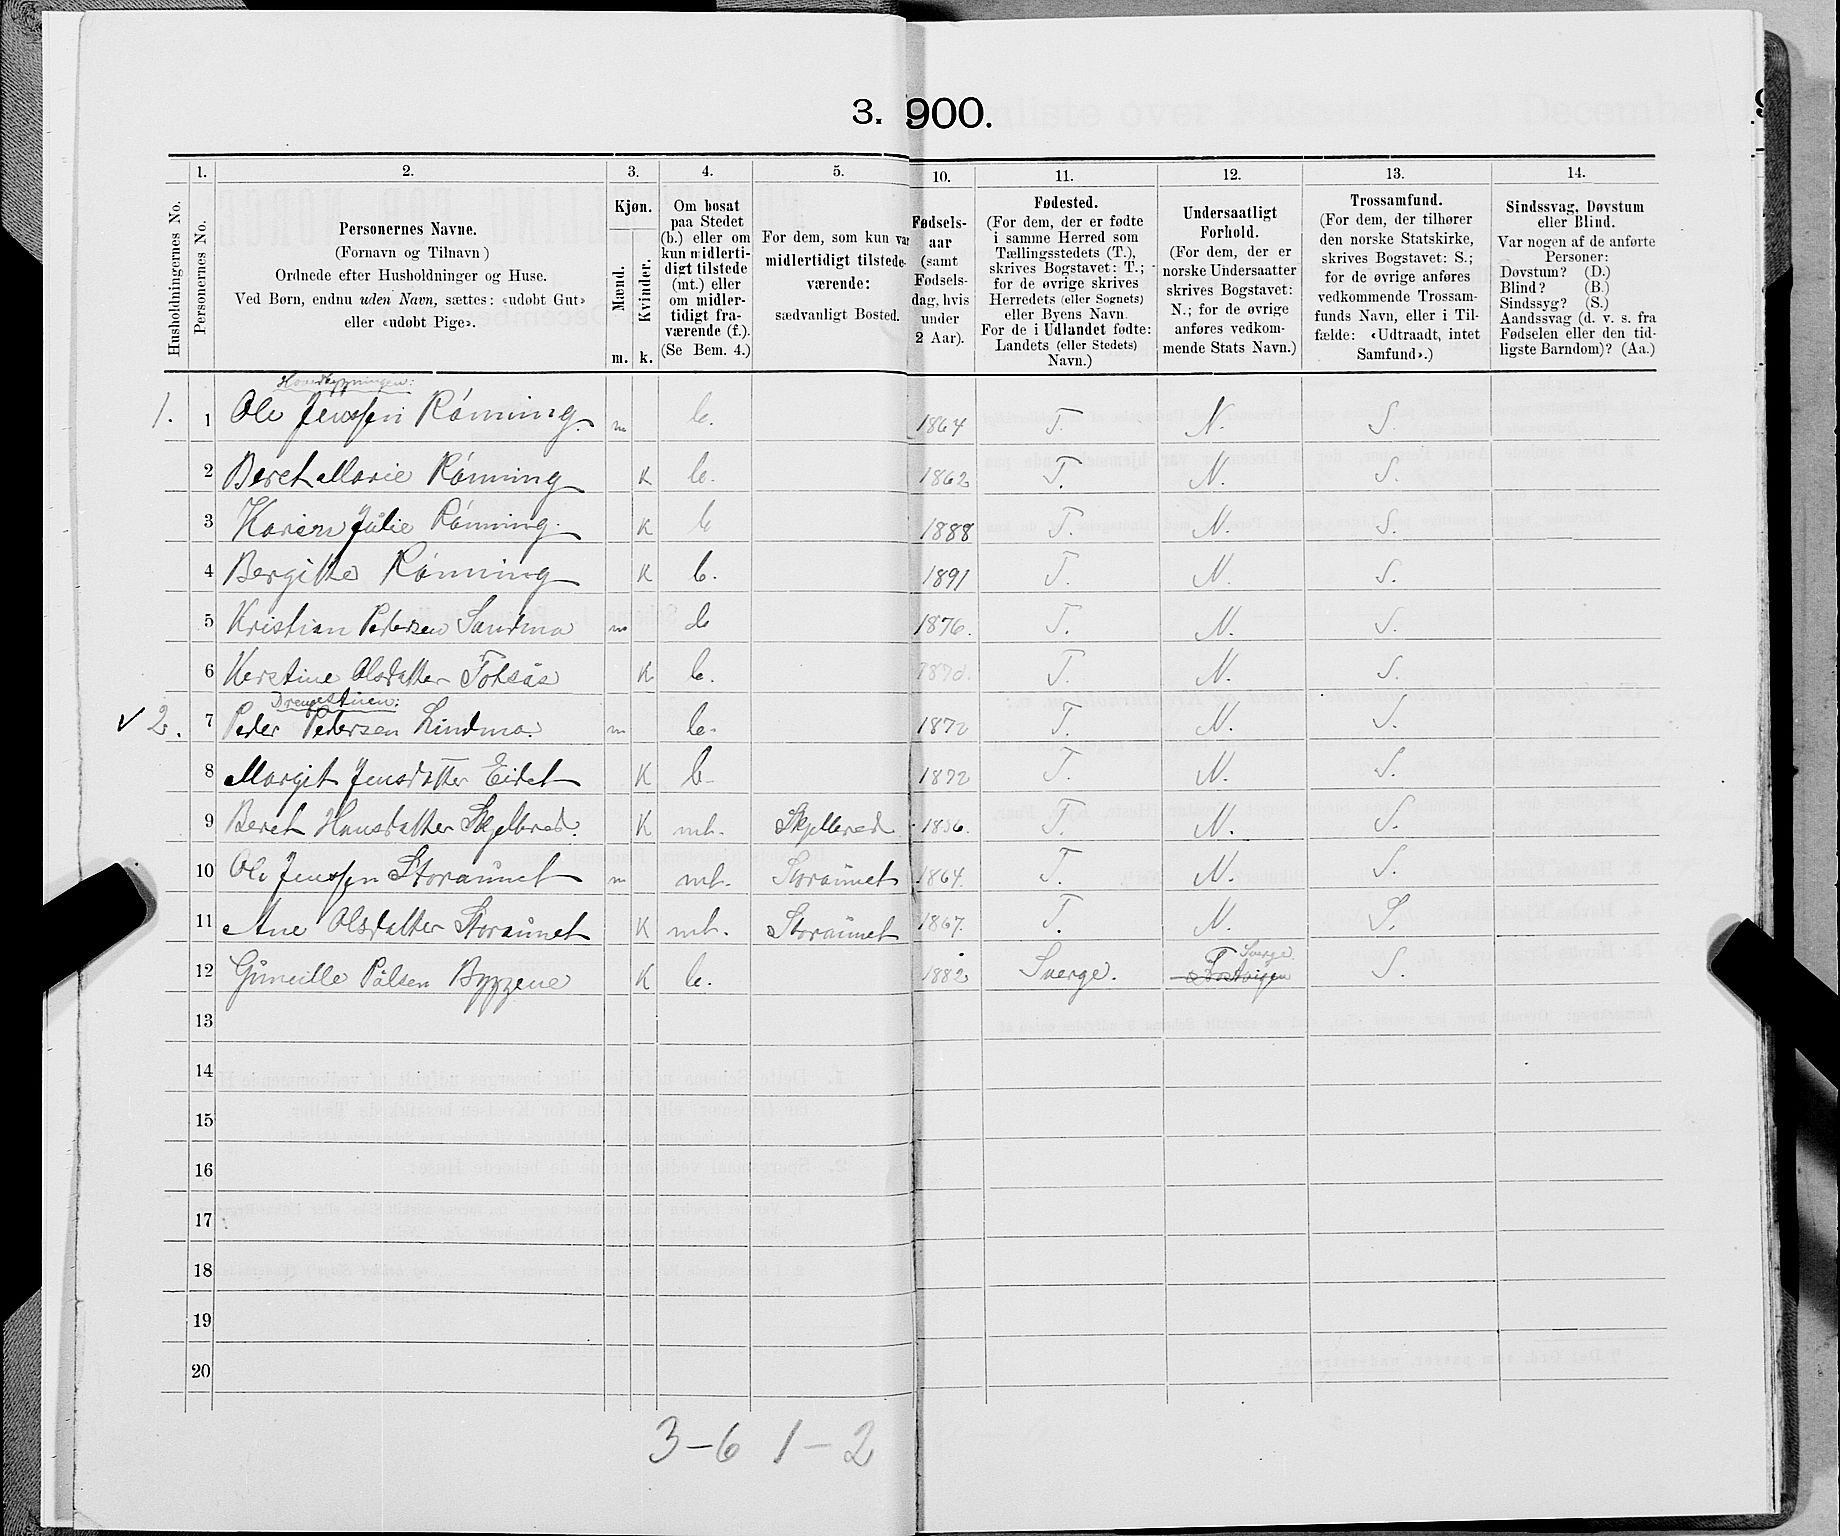 3. 900.
1. 2. 3. 4. 5. 10. 11. 12. 13. 14.
Husholdningernes No.
Personernes No.
Personernes Navne.
(Fornavn og Tilnavn)
Ordnede efter Husholdninger og Huse.
Ved Børn, endnu uden Navn, sættes: «udøbt Gut»
eller «udøbt Pige».
Kjøn.
Mænd.
Kvinder.
m. k.
Om bosat
paa Stedet
(b.) eller om
kun midlerti-
digt tilstede
(mt.) eller
om midler-
tidigt fra-
værende (f.).
(Se Bem. 4.)
For dem, som kun var
midlertidigt tilstede-
værende:
sædvanligt Bosted.
Fødsels-
aar
(samt
Fødsels-
dag, hvis
under
2 Aar).
Fødested.
(For dem, der er fødte
i samme Herred som
Tællingsstedets (T.),
skrives Bogstavet: T.;
for de øvrige skrives
Herredets (eller Sognets)
eller Byens Navn.
For de i Udlandet fødte:
Landets (eller Stedets)
Navn.)
Undersaatligt
Forhold.
(For dem, der er
norske Undersaatter
skrives Bogstavet:
N.; for de øvrige
anføres vedkom-
mende Stats Navn.)
Trossamfund.
(For dem, der tilhører
den norske Statskirke,
skrives Bogstavet: S.;
for de øvrige anføres
vedkommende Trossam-
funds Navn, eller i Til-
fælde: «Udtraadt, intet
Samfund».)
Sindssvag, Døvstum
eller Blind.
Var nogen af de anførte
Personer:
Døvstum? (D.)
Blind? (B.)
Sindssyg? (S.)
Aandssvag (d. v. s. fra
Fødselen eller den tid-
ligste Barndom)? (Aa.)
Hovedbygningen:
1. 1 Ole Jenssen Rønning. m b. 1864 T. N. S.
2 Beret Marie Rønning K b. 1862 T. N. S.
3 Karen Julie Rønning. K b 1888 T. N. S.
4 Bergitte Rønning K b. 1891 T. N. S.
5 Kristian Petersen Sandmo m b 1876. T. N. S.
6 Kerstine Olsdatter Totsås K b. 1870. T. N. S.
Drengestuen:
✓ 2. 7 Peder Petersen Lindmo. m b. 1872 T. N. S.
8 Margit Jensdatter Eidet K b. 1872 T. N. S.
9 Beret Hansdatter Skjelbred. K mt. Skjelbred 1856. T. N. S.
10 Ole Jenssen Storaunet m mt. Storaunet 1864. T. N. S.
11 Ane Olsdatter Storaunet K mt. Storaunet 1867. T. N. S.
12 Guneille Pålsen K b. 1882 Sverge. Sverge S.
13
14
15
16
17
18
19
20
3–6 1–2